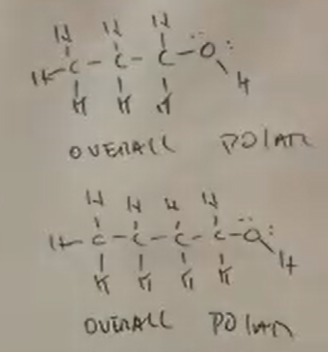 H H H
H - C - C - C - O
H H H H
OVERALL POlAR
H H H H
H - C - C - C - C - O
H H H H H
OVERALL POlAR